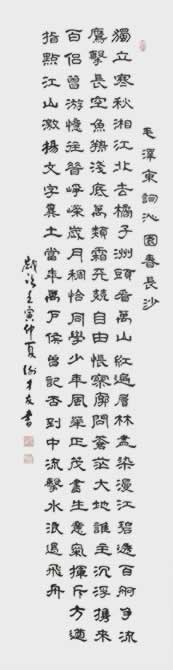 毛澤東詞沁園春長沙
獨立寒秋湘江北去橘子洲頭看萬山紅遍層林盡染漫江碧透百舸爭流
鷹擊長空魚翔淺底萬類霜天競自由悵寥廓問蒼茫大地誰主沉浮攜來
百侶曾游憶往昔崢嶸歲月稠恰同學少年風華正茂書生意氣揮斥方遒
指點江山激揚文字糞土當年萬戶侯曾記否到中流擊水浪遏飛舟
歲次壬寅仲夏才友書